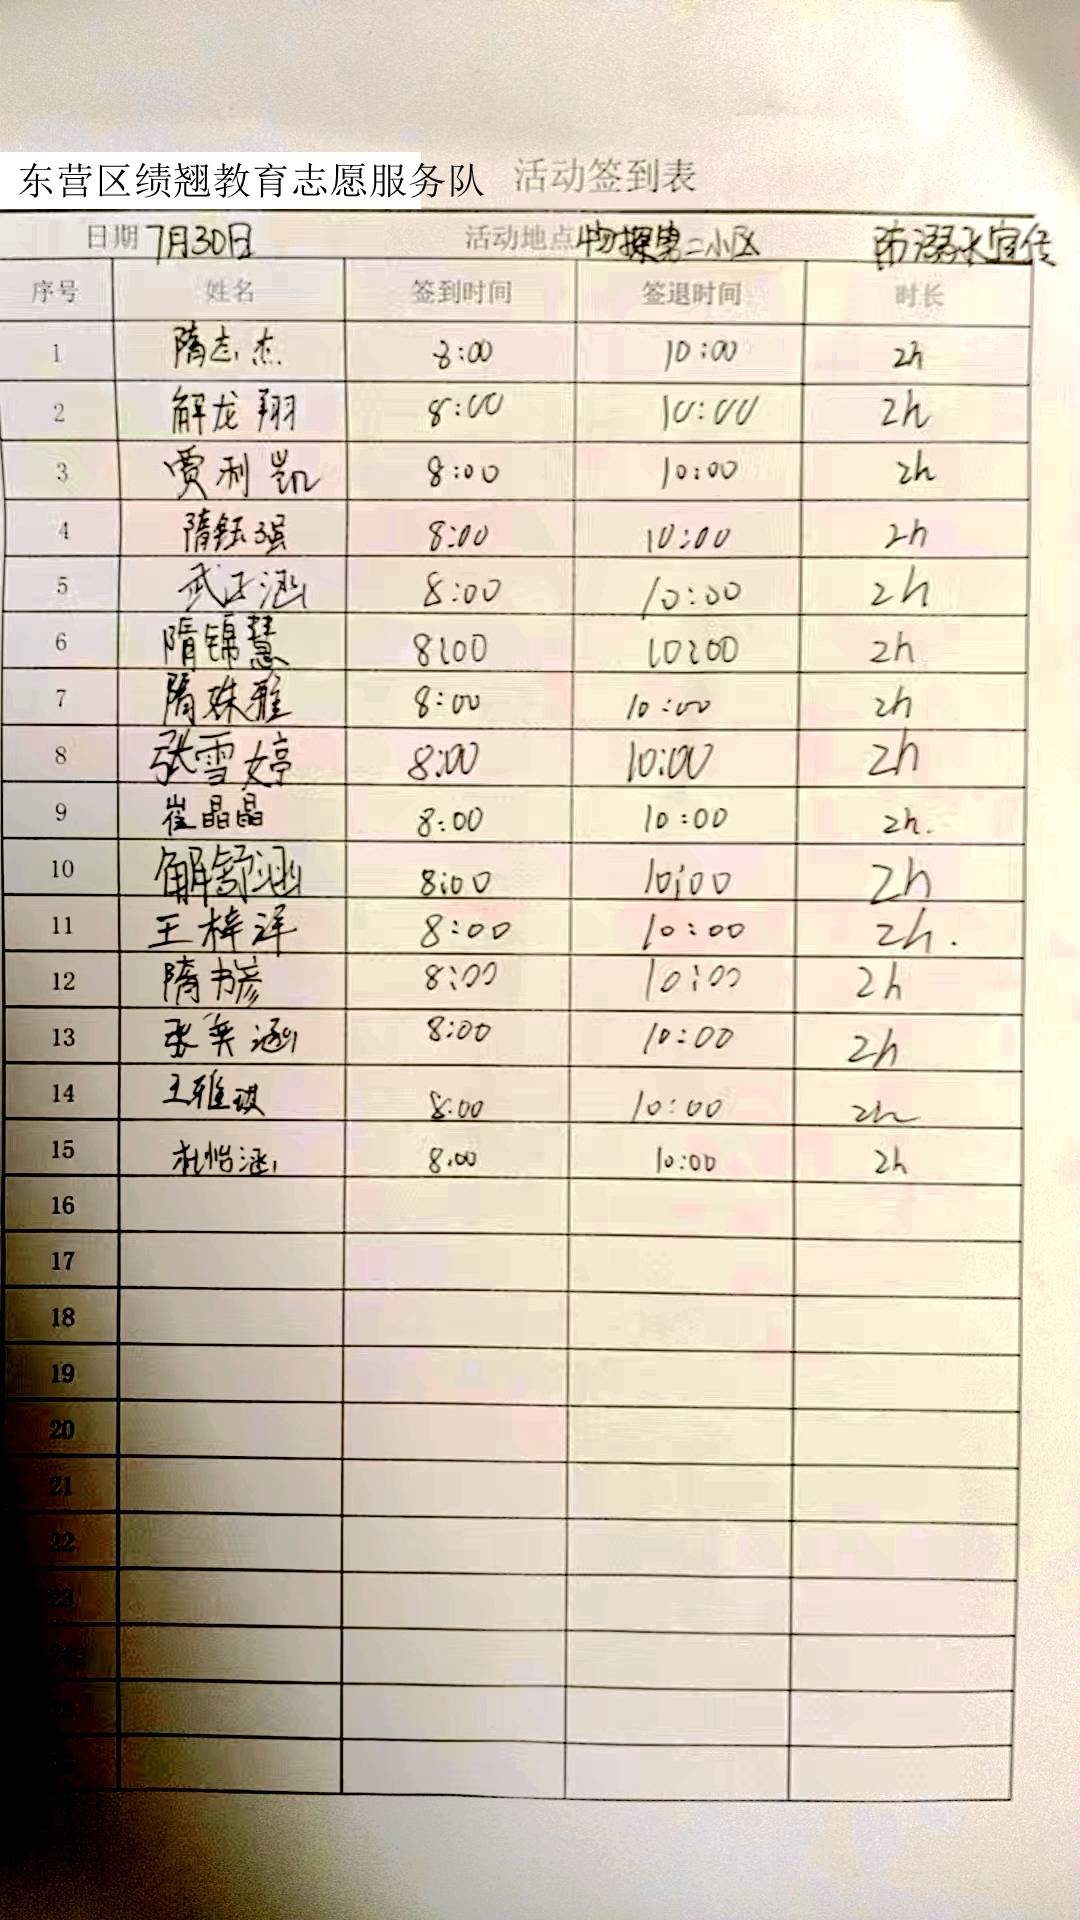 东营区绩翘教育志愿服务队 活动签到表
日期 7月30日 活动地点 物探第二小区 防溺水宣传
序号 姓名 签到时间 签退时间 时长
1 隋志杰 8:00 10:00 2h
2 解龙翔 8:00 10:00 2h
3 贾利凯 8:00 10:00 2h
4 隋钰强 8:00 10:00 2h
5 武正涵 8:00 10:00 2h
6 隋锦慧 8:00 10:00 2h
7 隋姝雅 8:00 10:00 2h
8 张雪婷 8:00 10:00 2h
9 崔晶晶 8:00 10:00 2h.
10 解舒涵 8:00 10:00 2h
11 王梓洋 8:00 10:00 2h.
12 隋书彦 8:00 10:00 2h
13 张奕涵 8:00 10:00 2h
14 王雅琪 8:00 10:00 2h
15 杜怡涵 8:00 10:00 2h
16
17
18
19
20
21
22
23